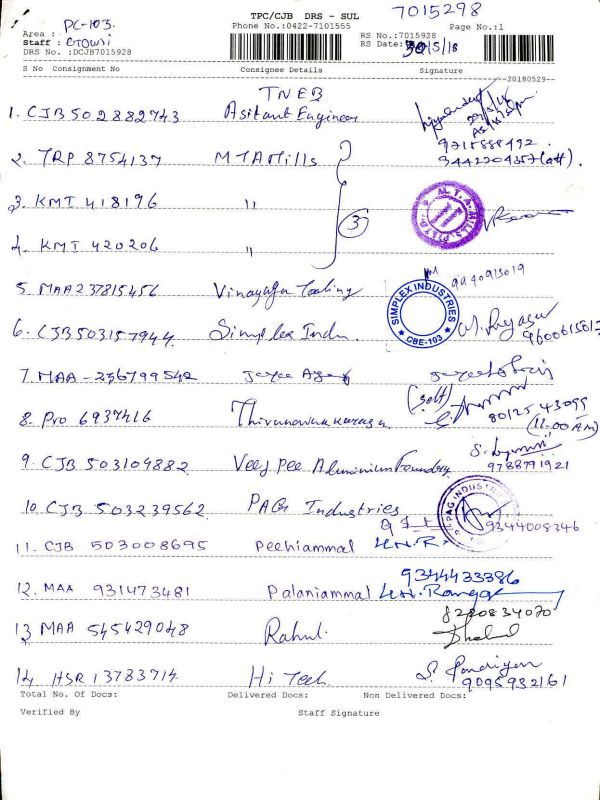 TPC/CJB DRS - SUL
7015298
Phone No.:0422-7101555
Page No.:1
Area : PC-103.
Staff : Gowri
DRS No. :DCJB7015928
RS No.:7015928
RS Date: 30/5/18
S No Consignment No Consignee Details Signature
20180529
TNEB
1. CJB502882743 Asitant Engineer
29/5/18
9715888492
2. TRP 8754137 MTA Mills
9442204357(off).
3. KMT 418196 "
M.T.A. MILLS
3
4. KMT 420206 "
5. MAA237815456 Vinayaga Tooling 9940913019
SIMPLEX INDUSTRIES
CBE-103
6. CJB503157944 Simplex Indu.
7. MAA-256799542 Jayee
(self)
8. Pro 6937416 Thirunavukarasu 80125 43099
(11.00 AM)
9. CJB 503109882 Veejpee Aluminium Foundry 9788791921
10. CJB 503239562 PAG Industries 9344008346
PAG INDUSTRIES
11. CJB 503008695 Pechiammal
9344433386
12. MAA 931473481 Palaniammal
8220834070
13 MAA 545429048 Rahul.
14. HSR 13783714 Hi Tech. S. Pandiyan
9095932161
Total No. Of Docs: Delivered Docs: Non Delivered Docs:
Verified By Staff Signature